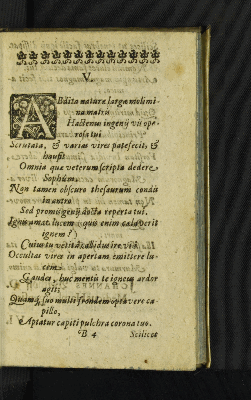 V.
ABdita naturæ largæ mysteri-
na matris
Hactenus ingenij vis ope-
rosa tui
Scrutata, & varias vires patefecit, &
hausit
Omnia quæ veterum scripta dedere
Sophûm,
Non tamen obscuro thesaurum condis
in antro
Sed promis genij docta reperta tui.
enim celaverit
ignem?)
Occultas vires in apertam emittere lu-
cem.
Gaude, huc mentis te ignea ardor
agit;
Quamq, suo multi frondem optavere ca-
pillo,
Aptatur capiti pulchra corona tuo.
B 4 Scilicet